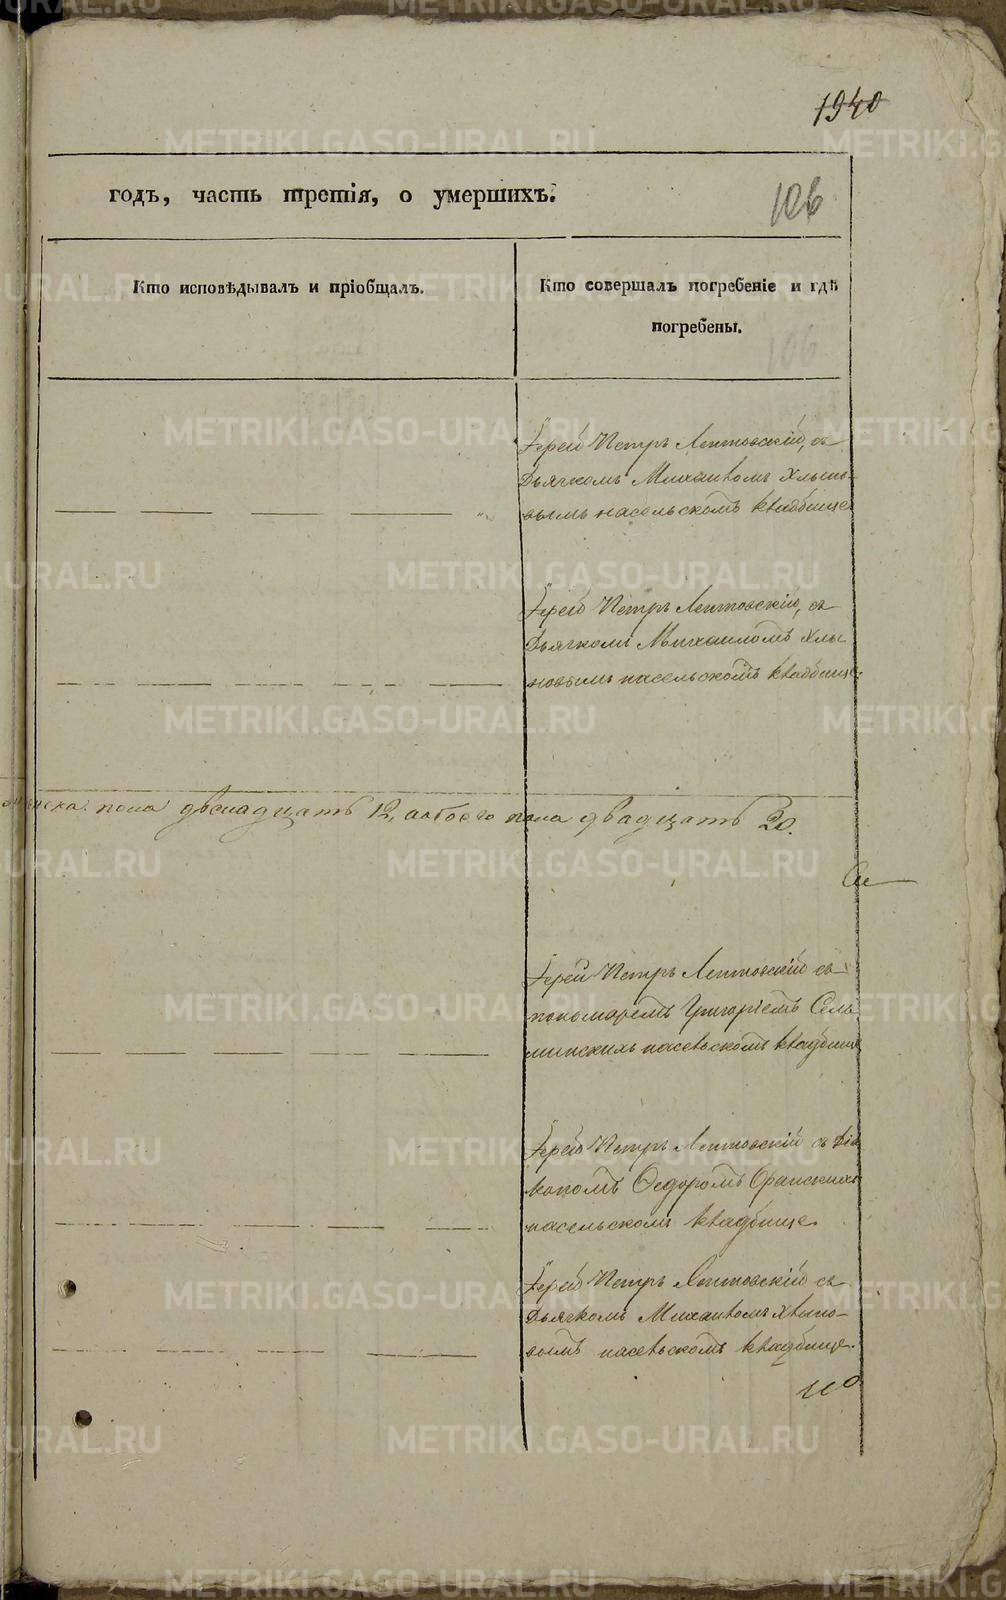 1940
годъ, часть третія, о умершихъ.
106
Кто исповѣдывалъ и пріобщалъ.
Кто совершалъ погребеніе и гдѣ
погребены.
106
Іерей Петръ Лептовскій, съ
Дьячкомъ Михаиломъ Хлыно-
вымъ насельскомъ кладбище
Іерей Петръ Лептовскій, съ
Дьячкомъ Михаиломъ Хлы
новымъ насельскомъ кладбище.
пола двенадцать 12, аобоего пола двадцать 20.
Іерей Петръ Лептовскій съ
пономаремъ Григоріемъ Сель
минскихъ насельскомъ кладбище
Іерей Петръ Лептовскій съ Діа
кономъ Ѳедоромъ
насельскомъ кладбище.
Іерей Петръ Лептовскій съ
Дьячкомъ Михаиломъ Хлыно-
вымъ насельскомъ кладбище.
METRIKI.GASO-URAL.RU